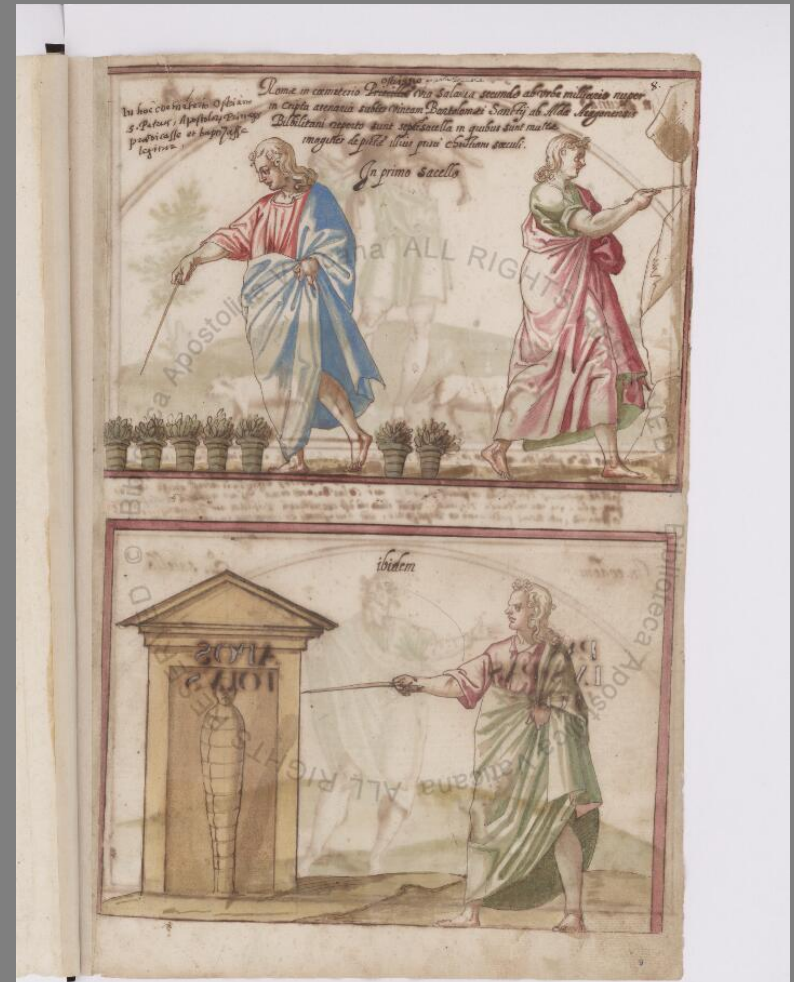 ostriano
Romæ in cœmeterio Priscillæ via Salaria secundo ab urbe milliario nuper
in Cripta arenaria subter vineam Bartolomæi Sanctij ab Alda
Bilbilitani reperto sunt septem sacella in quibus sunt multæ
imagines depictæ illius primi christiani sæculi.
8.
In hoc cœmeterio Ostriano
S. Petrus, Apostolus Princeps
prædicasse et baptizasse
legitur.
In primo Sacello
ibidem
APOS
TOLVS
9
© Biblioteca Apostolica Vaticana ALL RIGHTS RESERVED
Biblioteca Apostolica Vaticana ALL RIGHTS RESERVED